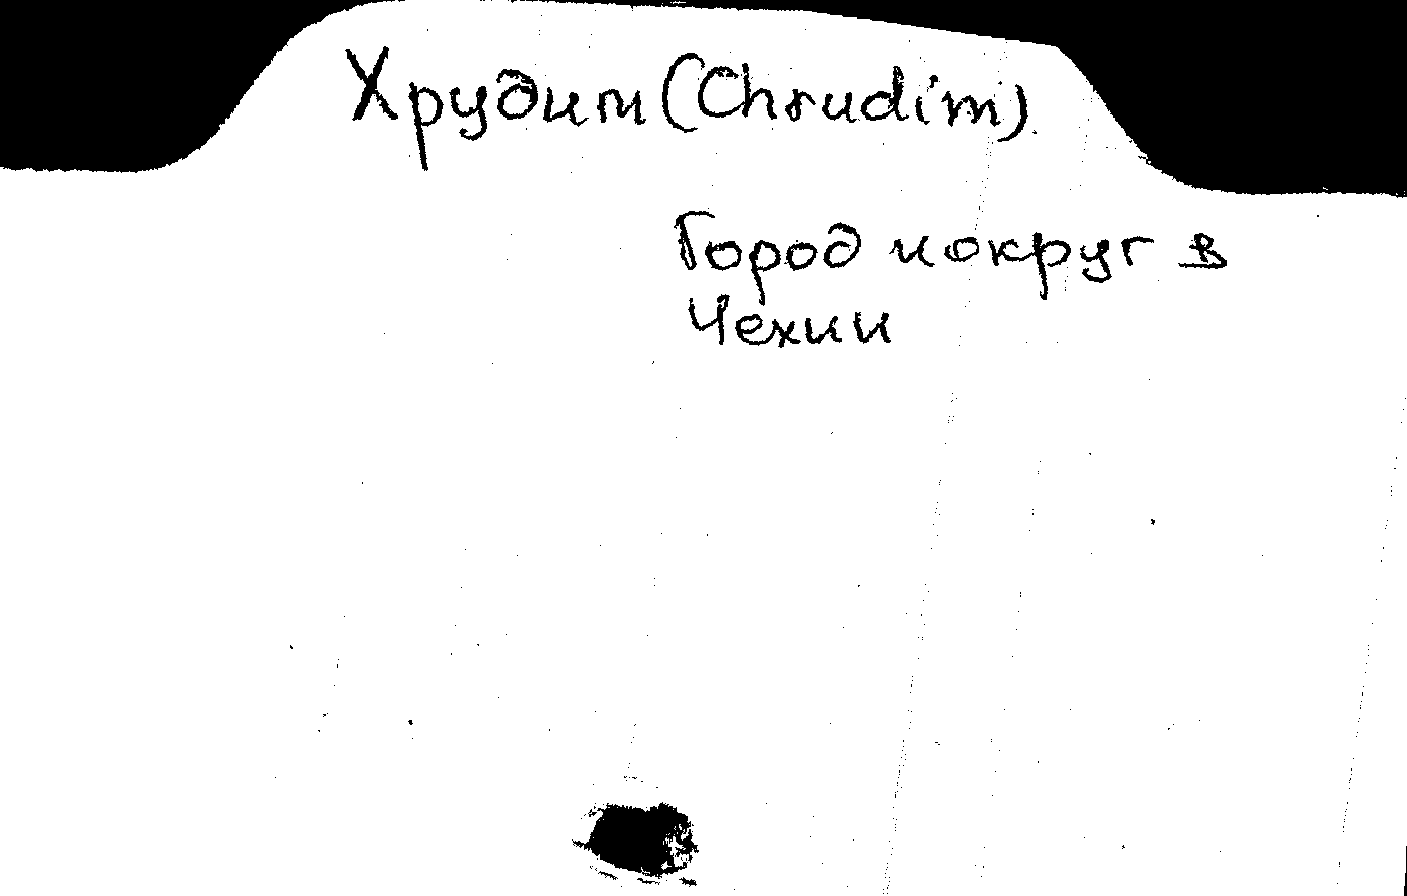 Хрудим (Chrudim)
Город и округ в
Чехии